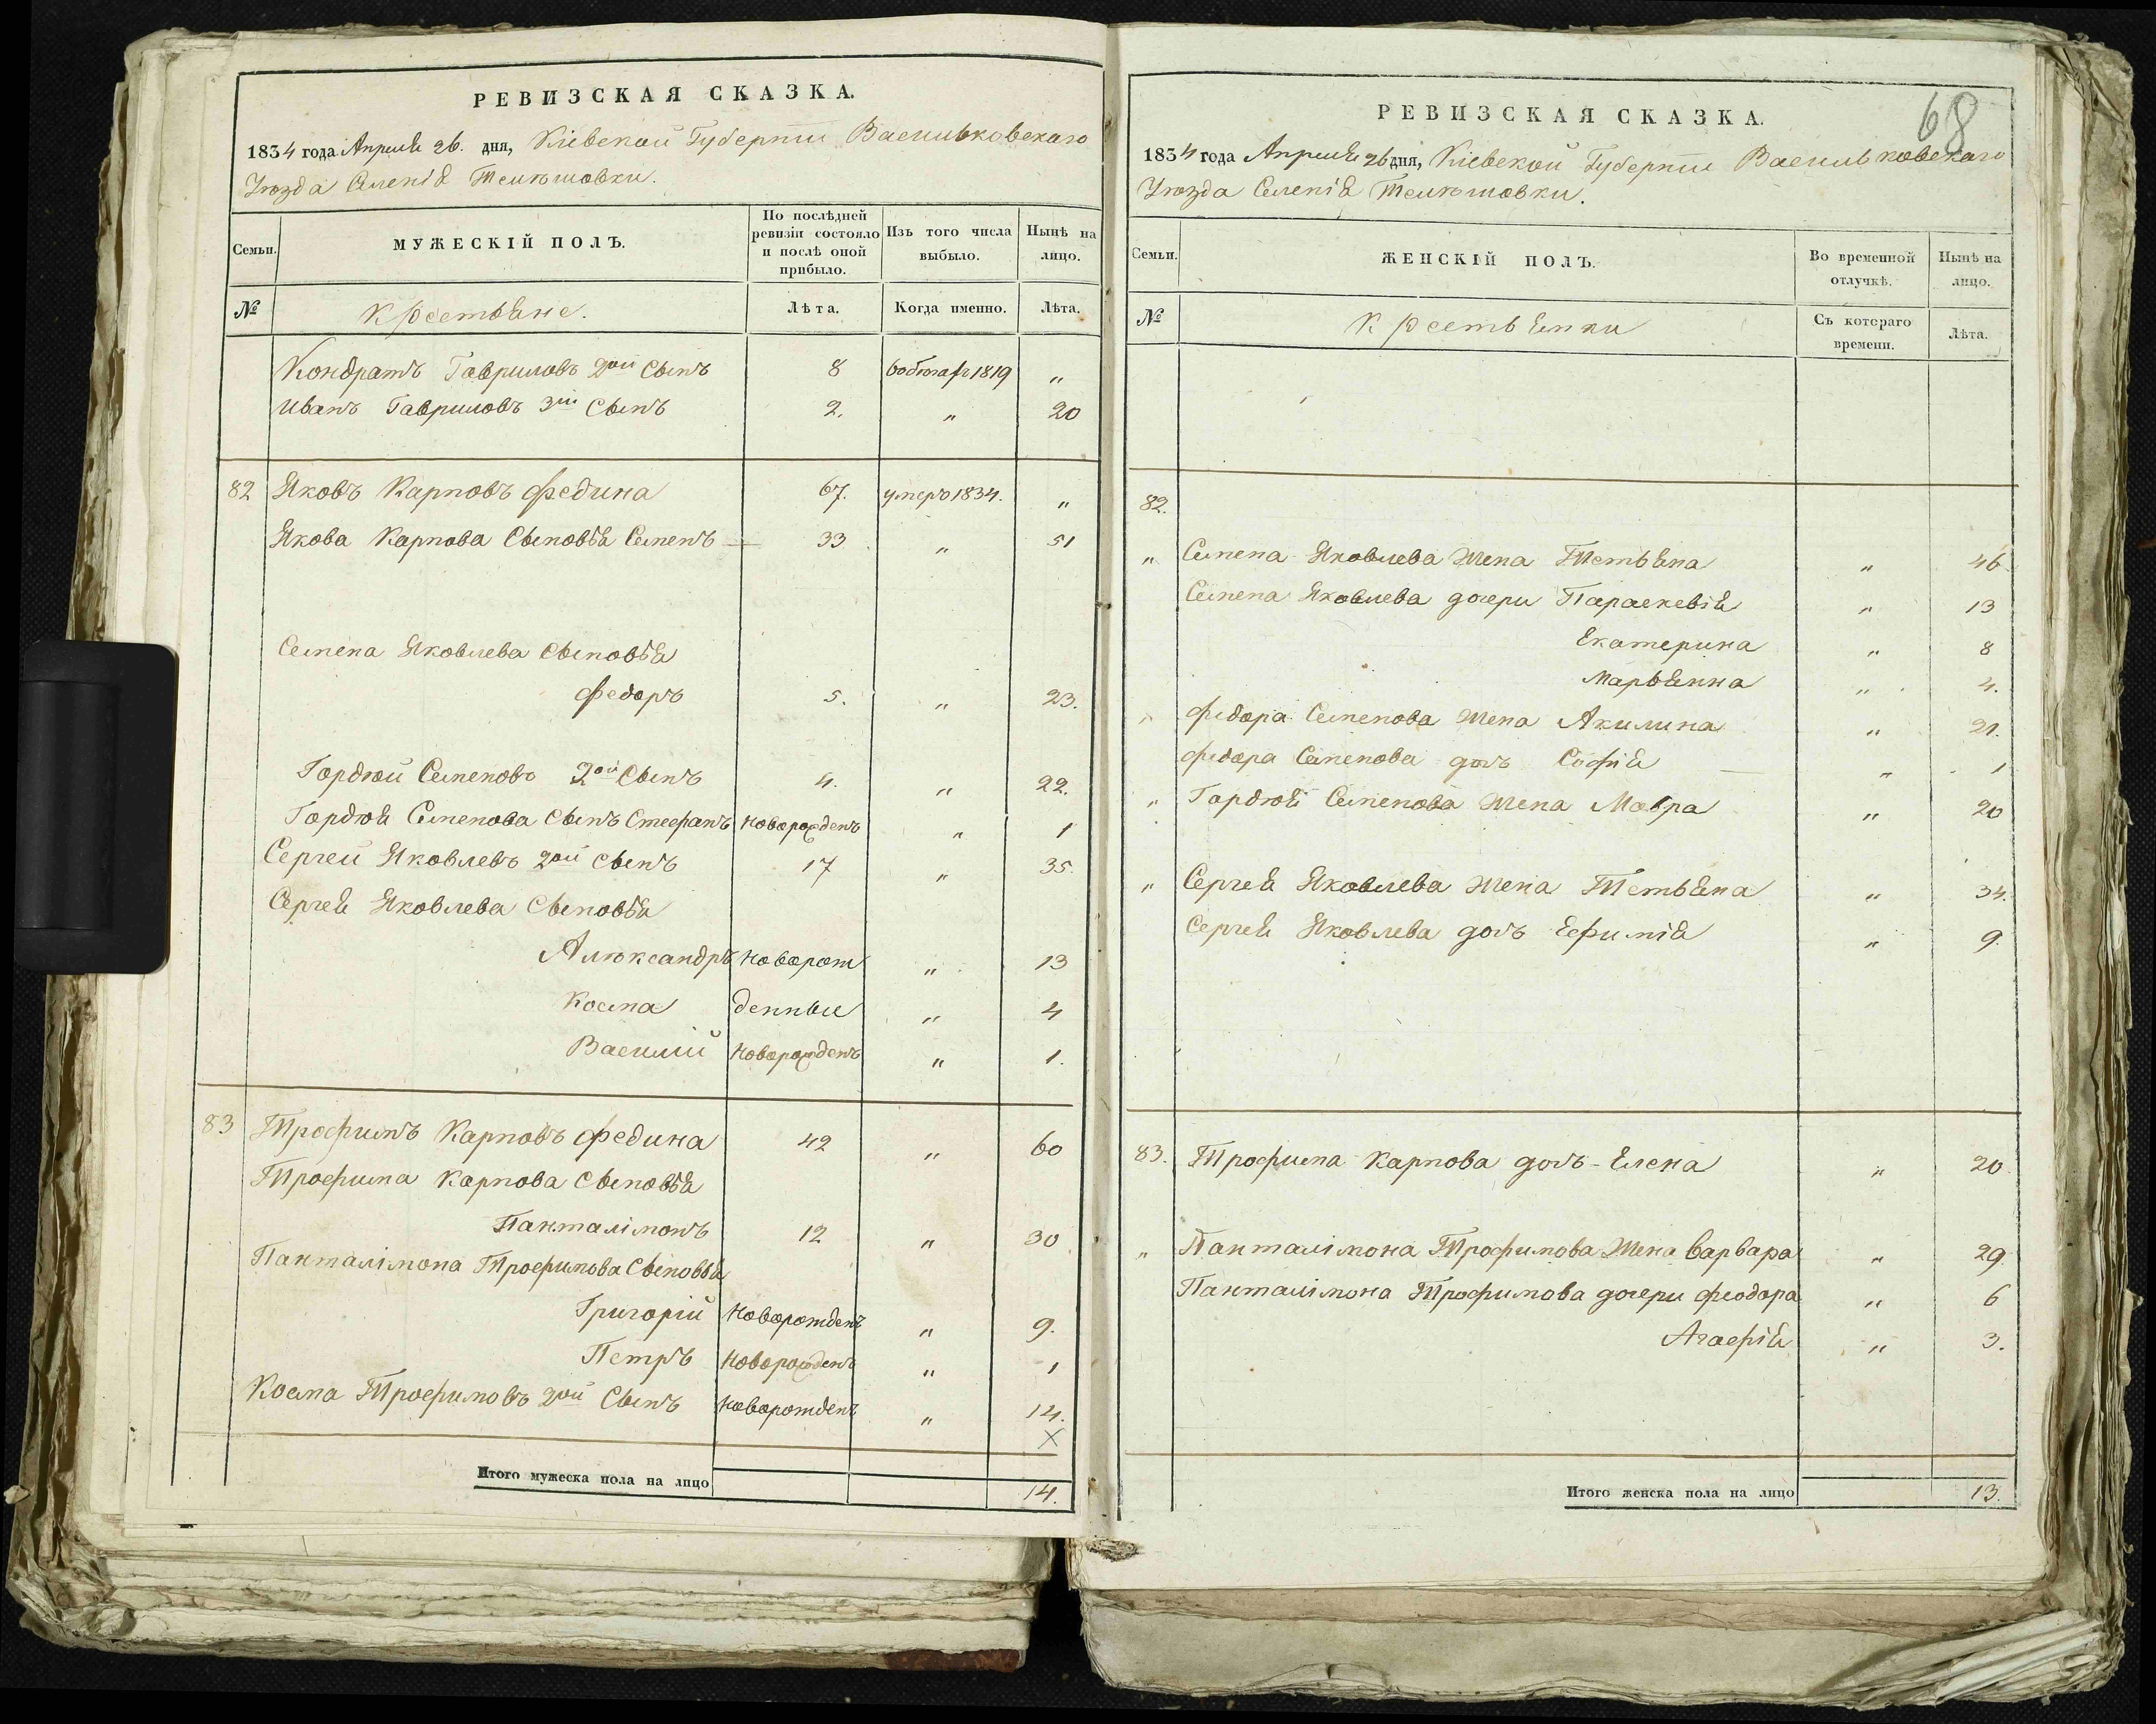 РЕВИЗСКАЯ СКАЗКА.
1834 года Апреля 26. дня, Кіевской Губерніи Васильковскаго
Уезда Селенія Телешовки.
Семьи.
МУЖЕСКІЙ ПОЛЪ.
По послѣдней ревизіи состояло и послѣ оной прибыло.
Изъ того числа выбыло.
Нынѣ на лицо.
№
Крестьяне.
Лѣта.
Когда именно.
Лѣта.
Кондратъ Гавриловъ 2ой Сынъ 8 1819 "
Иванъ Гавриловъ 3ій Сынъ 2. " 20
82 Яковъ Карповъ Федина 67. умеръ 1834. "
Якова Карпова Сыновья Семенъ 33 " 51
Семена Яковлева Сыновья
Федоръ 5. " 23.
Гордѣй Семеновъ 2ой Сынъ 4. " 22.
Гордѣя Семенова Сынъ Стефанъ новорожденъ " 1
Сергей Яковлевъ 2ой Сынъ 17 " 35.
Сергея Яковлева Сыновья
Александръ новорож " 13
Косма денные " 4
Василій новорожденъ " 1.
83 Трофимъ Карповъ Федина 42 " 60
Трофима Карпова Сыновья
Панталімонъ 12 " 30
Панталімона Трофимова Сыновья
Григорій новорожденъ " 9.
Петръ новорожденъ " 1
Косма Трофимовъ 2ой Сынъ новорожденъ " 14.
X
Итого мужеска пола на лицо 14.
68
РЕВИЗСКАЯ СКАЗКА.
1834 года Апреля 26 дня, Кіевской Губерніи Васильковскаго
Уезда Селенія Телешовки.
Семьи.
ЖЕНСКІЙ ПОЛЪ.
Во временной отлучкѣ.
Нынѣ на лицо.
№
Крестьянки
Съ котораго времени.
Лѣта.
82.
" Семена Яковлева Жена Тетьяна " 46
Семена Яковлева дочери Параскевія " 13
Екатерина " 8
Марьянна " 4.
" Федора Семенова Жена Акилина " 21.
Федора Семенова дочь Софія " 1
" Гордѣя Семенова Жена Мавра " 20
" Сергея Яковлева Жена Тетьяна " 34.
Сергея Яковлева дочь Ефимія " 9
83. Трофима Карпова дочь Елена " 20
" Панталімона Трофимова Жена Варвара " 29
Панталімона Трофимова дочери Феодора " 6
Агафія " 3.
Итого женска пола на лицо 13.